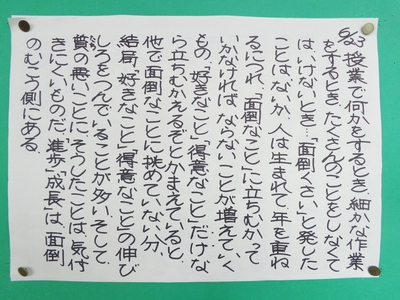 5/23 授業で何かをするとき、細かな作業
をするとき、たくさんのことをしなくて
はいけないとき…「面倒くさい」と発した
ことはないか。人は生まれて、年を重ね
るにつれ、「面倒なこと」に立ちむかって
いかなければならないことが増えていく
もの。「好きなこと」「得意なこと」だけな
ら立ちむかえるぞとかまえていると、
他で面倒なことに挑めていない分、
結局、「好きなこと」「得意なこと」の伸び
しろをつんでいることが多い。そして
質の悪いことに、そうしたことは、気付
きにくいものだ。「進歩」「成長」は、面倒
のむこう側にある。